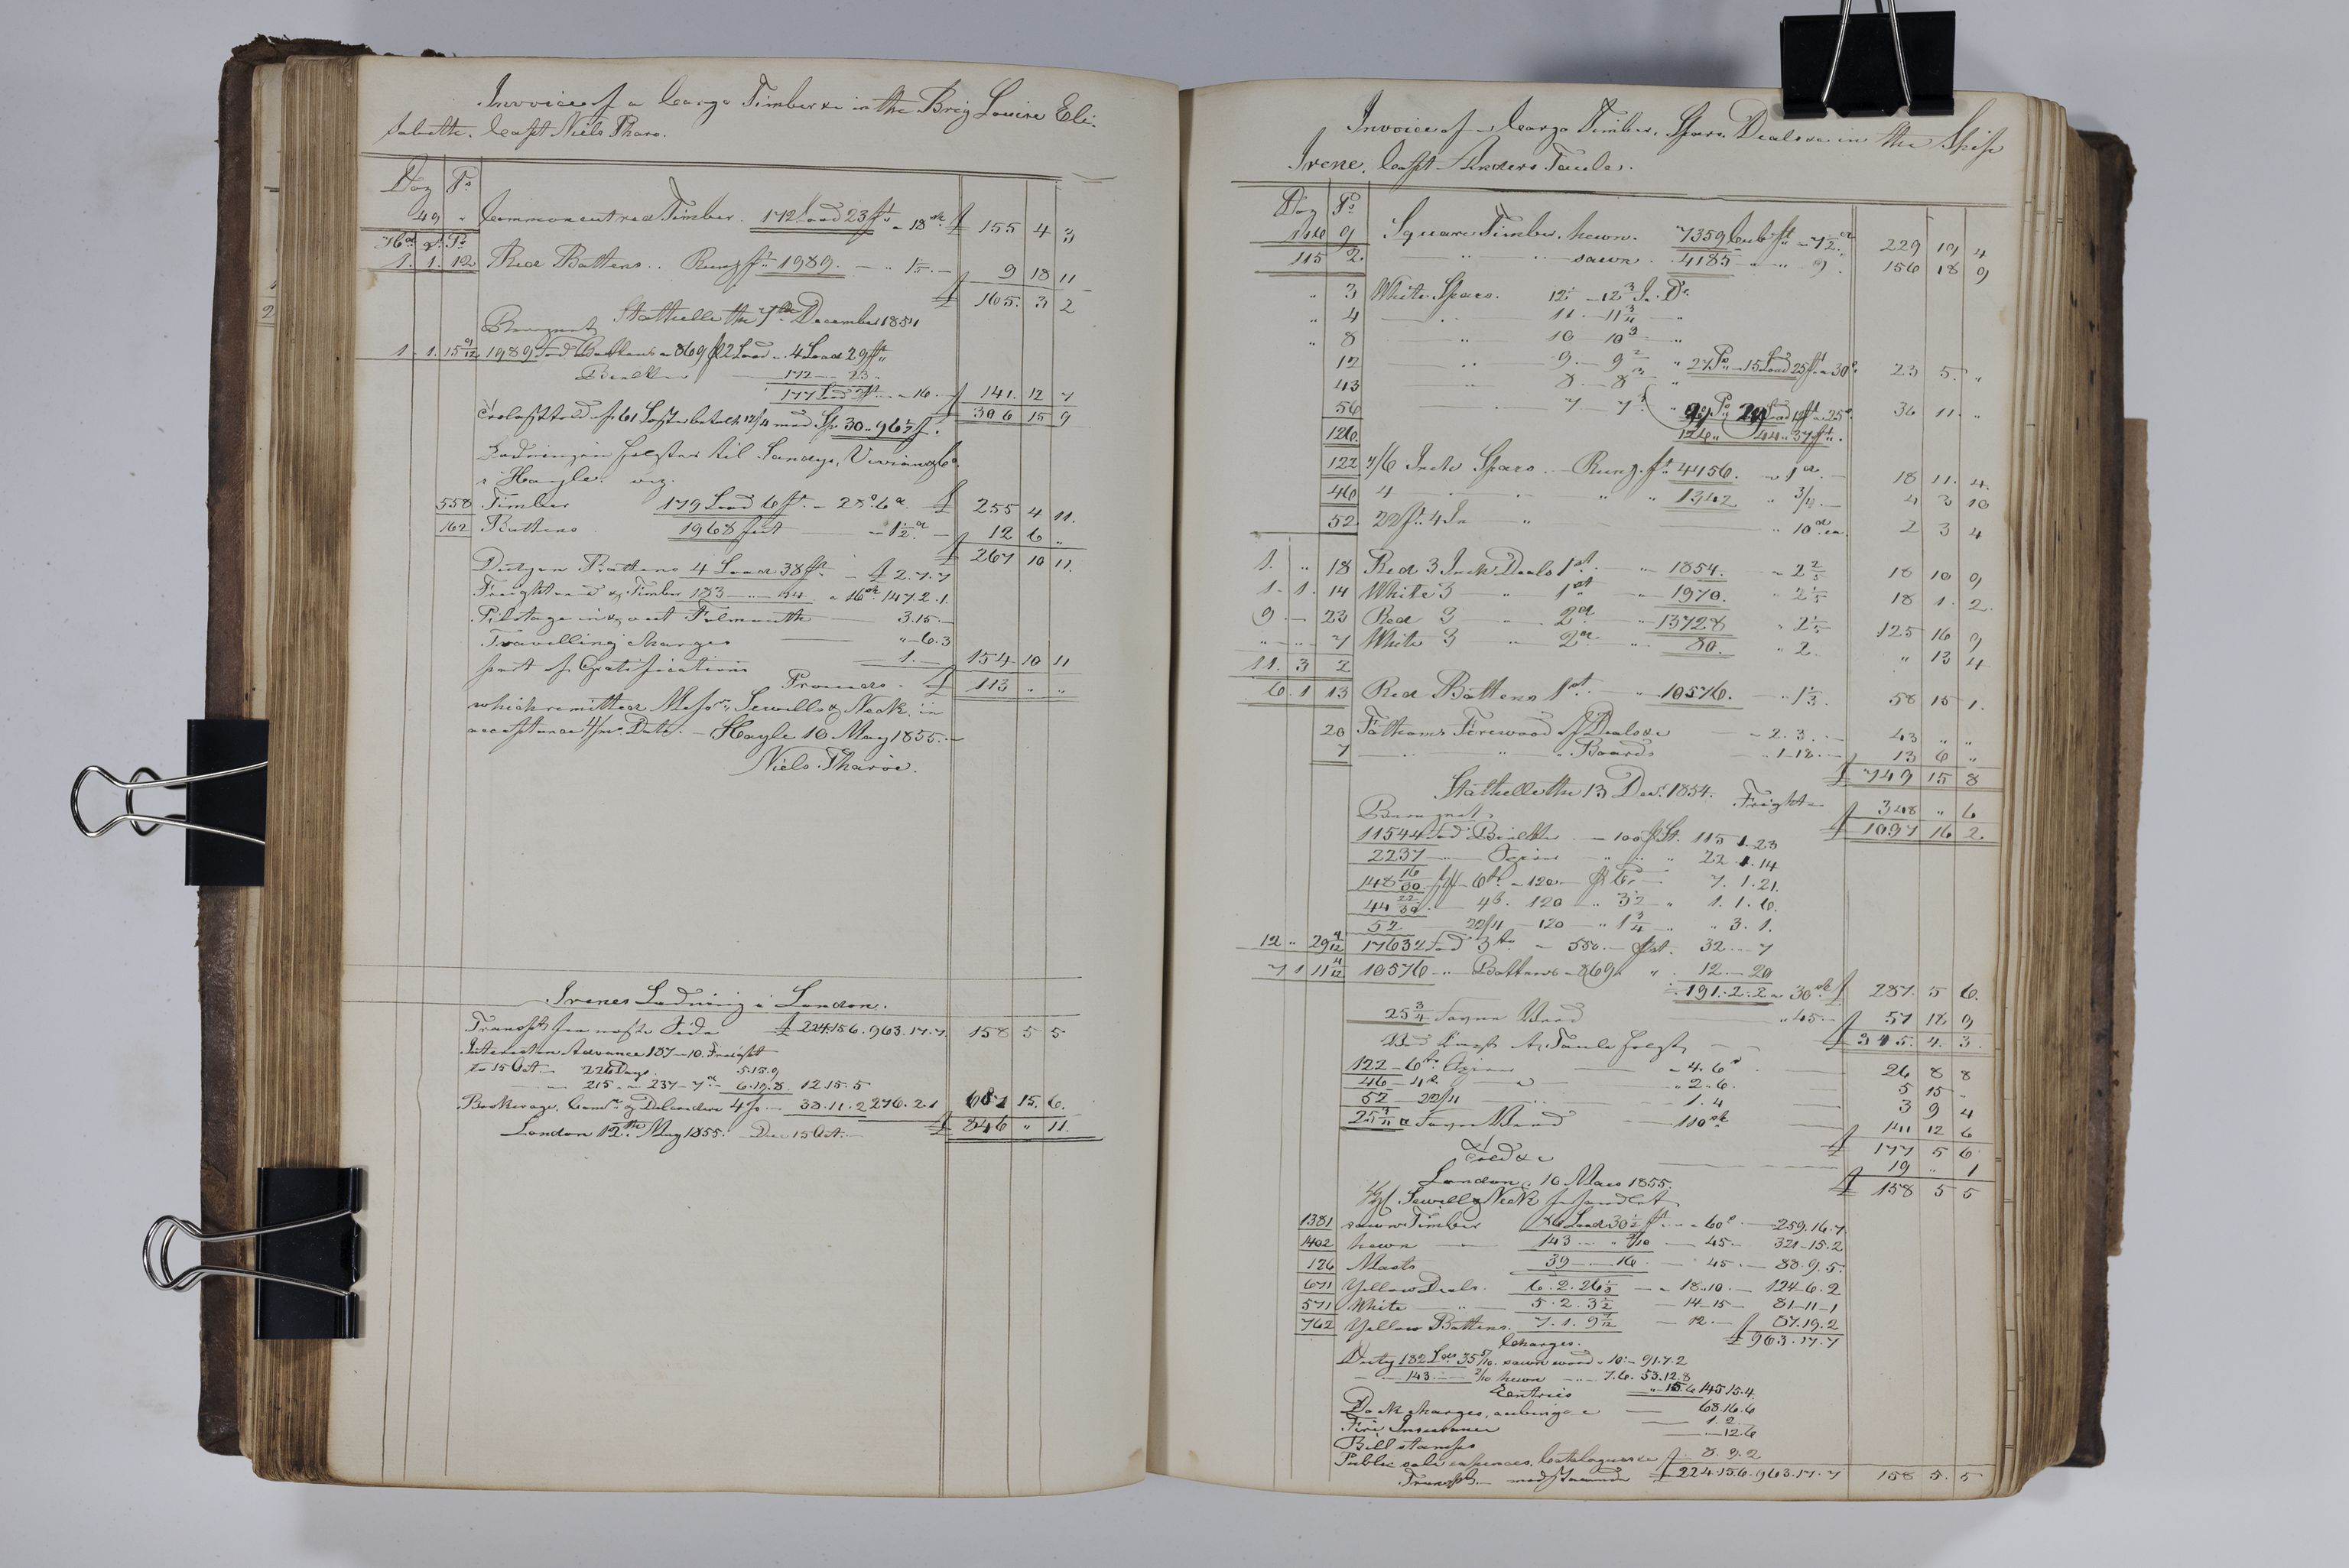 Invoice of a Cargo Timber &c in the Brig Louise Eli-
sabeth. Capt Niels Tharo.
Doz Ps
49 " Common cut red Timber. 172 Load 23 ft " 18 sh £ 155 4 3
Hd q. Ps
1. 1. 12 Red Battens .. Rung ft 1989. — 15. — 9 18 11
£ 165. 3 2
Stathelle the 7th December 1854
Beregnet
1. 1. 15 9/12 1989 fod Battens a 869 2 Load .. 4 Load 29 ft
Bielker 172 — 23.
177 Load 2 ft — 16. £ 141. 12 7
£ 306 15 9
61 Lester 12/4 med Sp. 30 " 96 1/2 ß.
Ladningen følgter til Sandys, Vivian & Co
i Hayle. viz.
558 Timber 179 Load 6 ft. — 28 s 6 d £ 255 4 11.
162 Battens 1968 feet — 1 1/2 d — 12 6 "
£ 267 10 11.
Duty on Battens 4 Load 38 ft — £ 2. 7. 7
Freight on d & Timber 183 — " 24 a 16 sh 147. 2. 1.
Pilotage in & out Falmouth — 3. 15 —
Travelling charges — " 6. 3
part of Gratification 1. — 154 10 11
Proceeds. £ 113 " "
which remitted Messrs Sewell & Neck in
acceptance 4/m Date. — Hayle 10 May 1855. —
Niels Tharoe.
Irenes Ladning i London.
Transpt fra næste Side £ 224.15.6. 963.17.7. 158 5 5
Interest on Advance 187–10. Freight
to 15 Oct. — 226 Days. 5.15.9
— " 215 " 237 – 7 d – 6.19.8. 12 15. 5
Brokerage, Comn & Delcredere 4 p — 38.11.2 276.2.1 687 15. 6.
£ 846 " 11.
London 12th May 1855. Due 15 Oct. —
Invoice of a Cargo Timber, Spars, Deals &c in the Ship
Irene. Capt Anders Taule.
Doz Ps
116 9 Square Timber, hewn. 7359 Cub ft " 7 1/2 d 229 19 4
115 2 — " — sawn. 4185 — " 9. 156 18 9
" 3 White Spars. 12 — 12 3/4 In. D
" 4 — " 11 — 11 3/4 — "
" 8 — " 10 10 3/4 — "
12 — " 9 — 9 3/4 " 27 Ps — 15 Load 25 ft a 30 s 23 5. "
43 — " 8 — 8 3/4
56 — " 7 — 7 3/4 " 99 Ps 29 Load 12 ft a 25 s 36 11. "
126 126 " 44 " 37 ft.
122 4/6 Inch Spars .. Rung. ft 4456. — 1 d — 18 11. 4.
46 4 — " — " 1342 " 3/4 — 4 3 10
52 22 ft 4 In — " — " 10 d ea 2 3 4
1. " 18 Red 3 Inch Deals 1st — " 1854. " 2 2/5 18 10 9
1. 1. 14 White 3 — " 1st — " 1970. " 2 1/5 18 1. 2.
9 — 23 Red 3 — " 2d — " 13728 " 2 1/5 125 16 9
" — " 7 White 3 — " 2d — " 80. " 2. " 13 4
11. 3 2
6. 1 13 Red Battens 1st — " 10576. — " 1 1/3. 58 15 1.
20 Fathoms Firewood of Deals &c — 2. 3. — 43 " "
7 — " — " Boards " 1 – 18. — 13 6 "
£ 749 15 8
Stathelle the 13 Decr 1854. Freight £ 348 " 6
£ 1097 16 2.
Beregnet,
11544 fod Bielker — a 100 p St. 115 1. 23
2237 — " Spirer " " " 22. 1. 14
148 16/30 — 6 t — 120 — 7. 1. 21.
44 22/30 — 4 t. 120 " 3 1/2 " 1. 1. 6.
52 — 22/4 — 120 " 1 3/4 " " 3. 1.
12 " 29 9/12 17632 fod 3 to " 550. — 32. " 7
7 1 11 4/12 10576 — " Battens – 869 " 12. — 20
191. 2. 2 a 30 sh £ 287. 5 6.
25 3/4 Favne Ved " 45 — 57 18 9
£ 345. 4. 3.
Capt A. Taule følgte
122 – 6 to Spirer — " 4. 6 d — 26 8 8
46 – 4 to — " " 2. 6. 5 15 —
52 — 22/4 — 1. 4 — 3 9 4
25 3/4 Favne Ved — 110 sh — 141 12 6
£ 177 5 6
Told &c — 19 " 1
London, 16 Mars 1855. £ 158 5 5
Sewell & Neck
1381 sawn Timber 86 Load 30 1/2 ft — a 60 s — 259.16.7.
1402 hewn — 143 — " 2/10 — 45 — 321–15.2
126 Masts 39 — 16 — 45. — 88. 9. 5.
671 Yellow Deals. 6. 2. 26 1/3 — a 18.10. — 124–6. 2
571 White — " 5. 2. 3 1/2 — 14–15 — 81–11–1
762 Yellow Battens. 7. 1. 9 7/12 — 12. — £ 87.19.2
£ 963.17.7
Charges.
Duty 182 Lds 35 5/10. sawn wood a 10 — 91.7.2
— 143 — 2/10 hewn — 7.6. 53.12.8
Entries " 15.6 145.15.4.
Dock charges, cubing &c — 68.16.6
Fire Insurance — 1. 2. —
Bill stamps — 12.6
Public sale expences, Catalogues &c 8. 9. 2
Transpt modstaaende £ 224.15.6. 963.17.7 158 5. 5